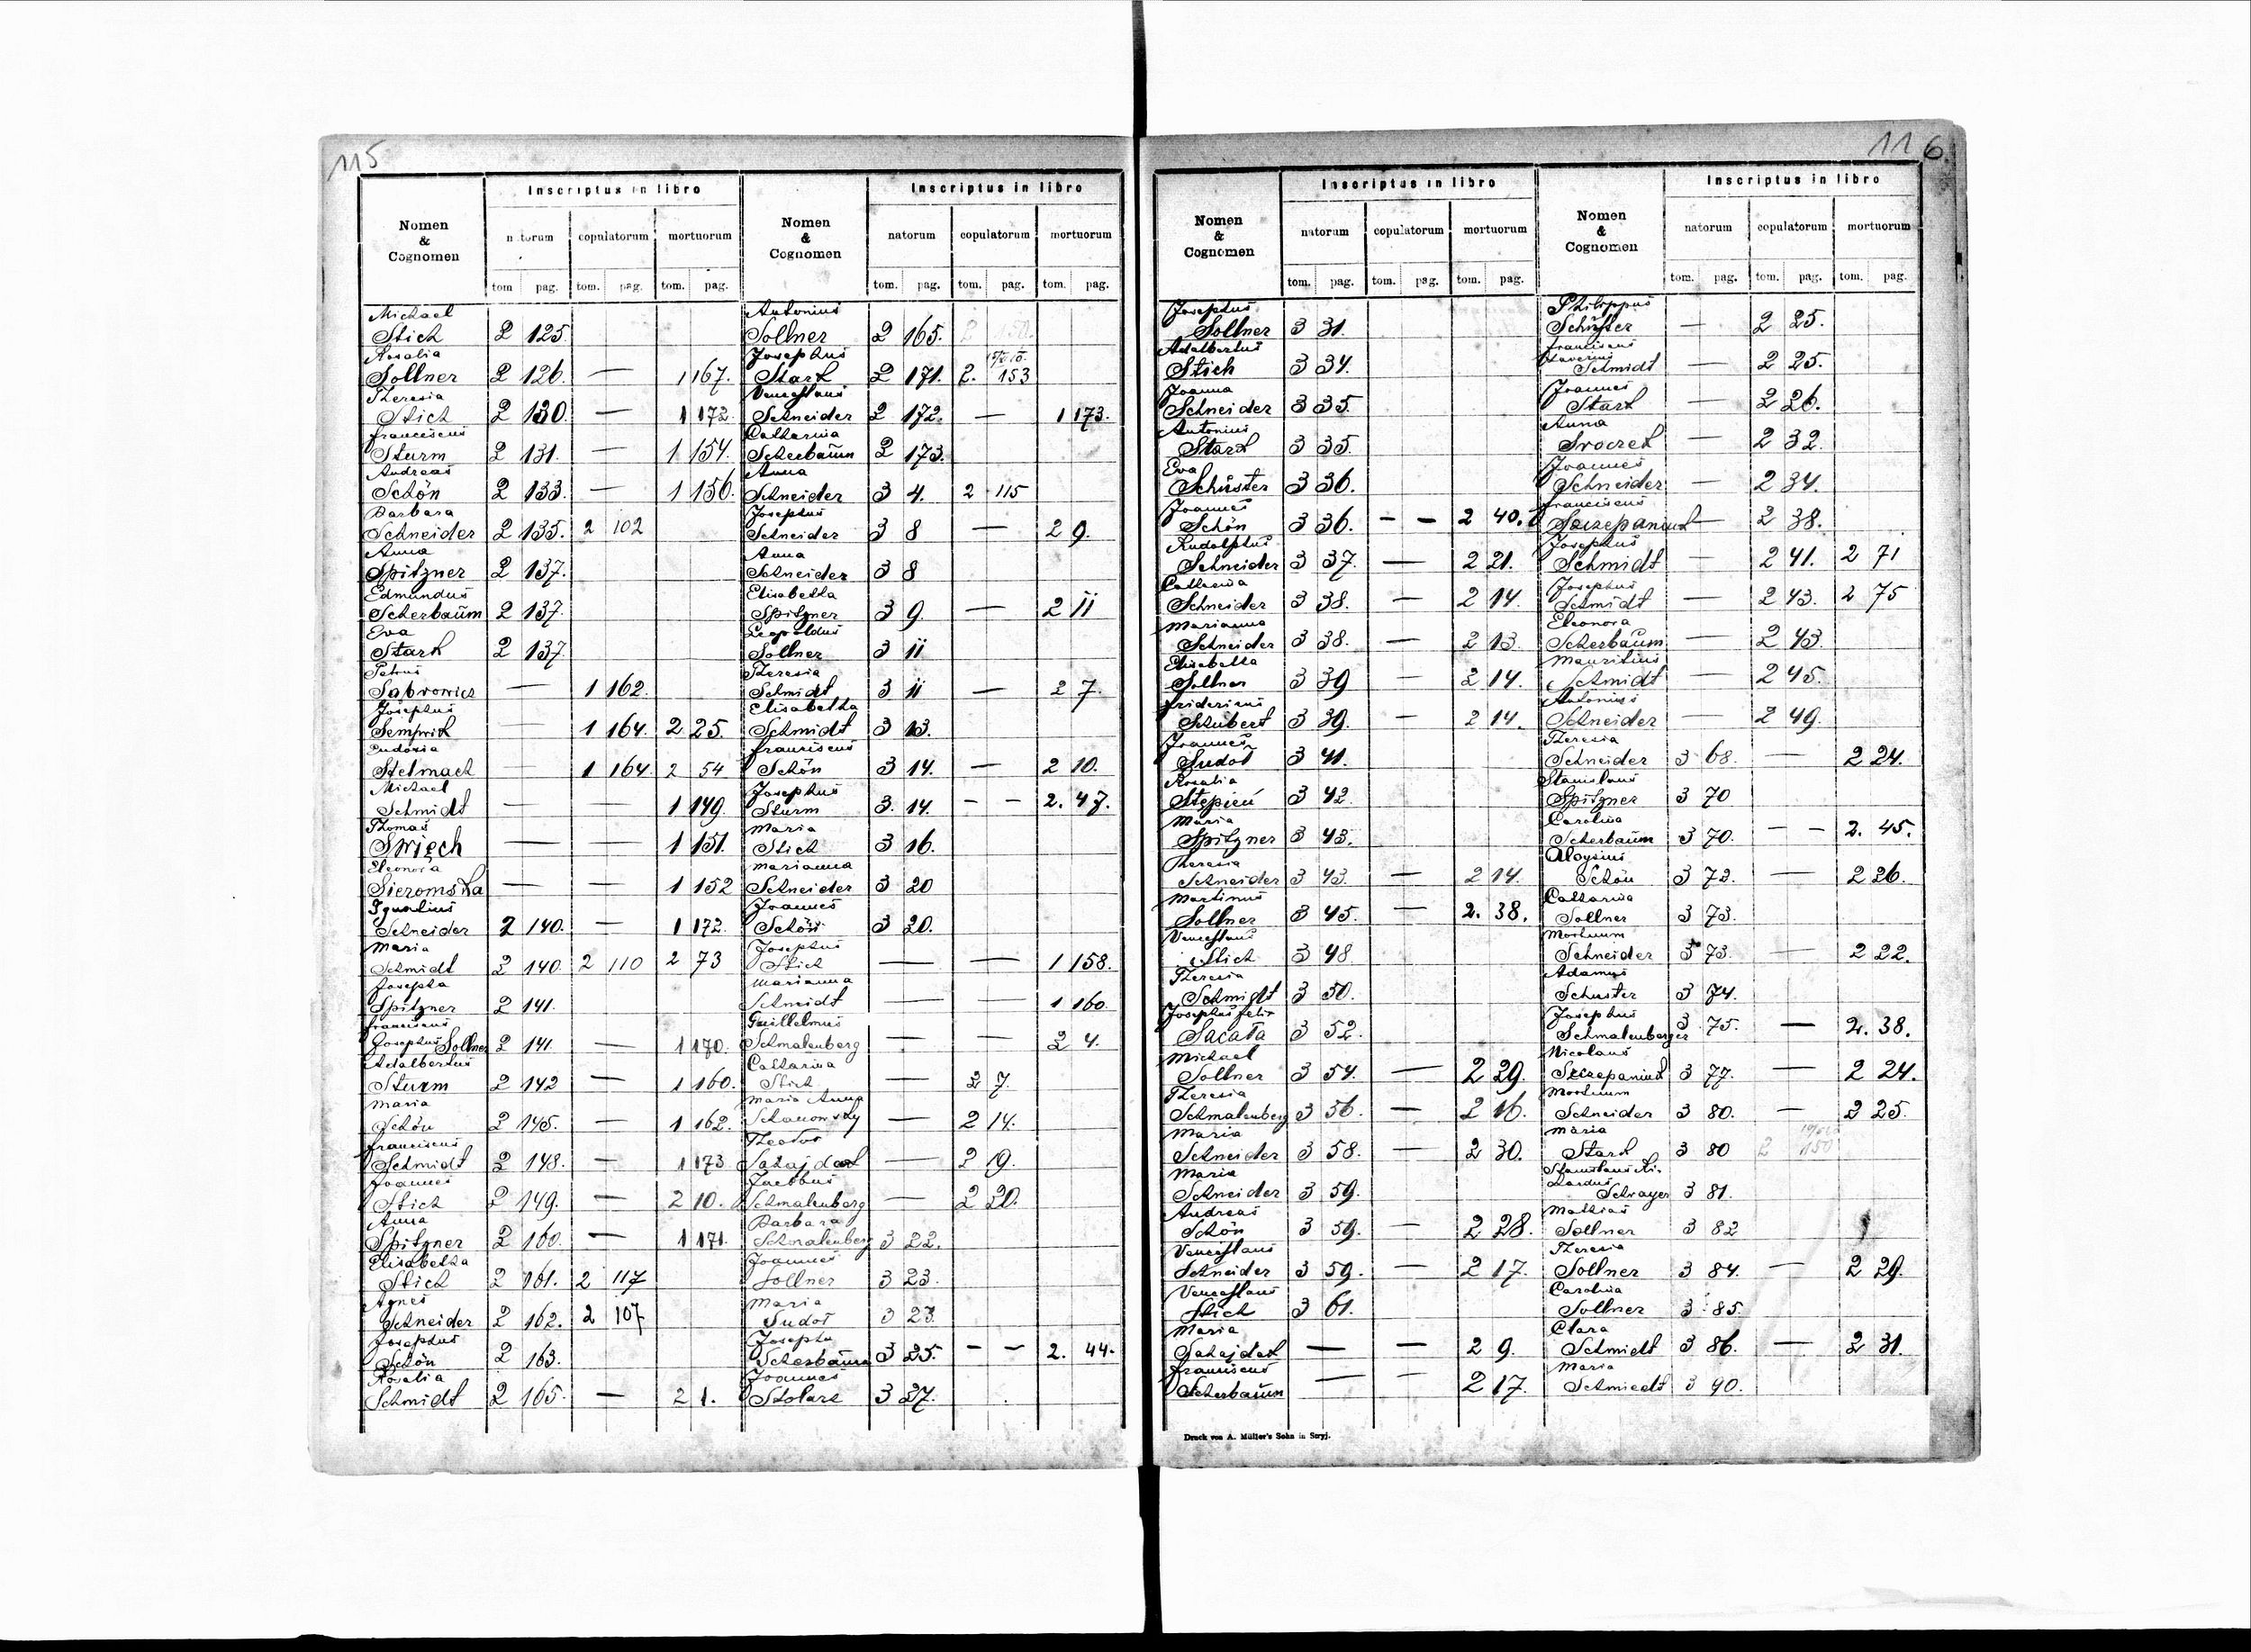 115
Nomen & Cognomen
Inscriptus in libro
natorum copulatorum mortuorum
tom. pag. tom. pag. tom. pag.
Michael
Stich 2 125.
Rosalia
Sollner 2 126. — 1 167.
Theresia
Stich 2 130. — 1 172
Franciscus
Sturm 2 131. — 1 154.
Andreas
Schön 2 133. — 1 156.
Barbara
Schneider 2 135. 2 102
Anna
Spitzner 2 137.
Edmundus
Scherbaŭm 2 137.
Eva
Stark 2 137.
Petrus
— 1 162.
Josephus
— 1 164. 2 25.
Eudoxia
Stelmach — 1 164. 2 54
Michael
Schmidt — — 1 149.
Thomas
Swięch — — 1 151.
Eleonora
Sieromska — — 1 152
Ignatius
Schneider 2 140. — 1 172.
Maria
Schmidt 2 140. 2 110 2 73
Josepha
Spitzner 2 141.
Franciscus
Josephus Sollner 2 141. — 1 170.
Adalbertus
Sturm 2 142 — 1 160.
Maria
Schön 2 145. — 1 162.
Franciscus
Schmidt 2 148. — 1 173
Joannes
Stich 2 149. — 2 10.
Anna
Spitzner 2 160. — 1 171.
Elisabetha
Stich 2 161. 2 117
Agnes
Schneider 2 162. 2 107
Josephus
Schön 2 163.
Rosalia
Schmidt 2 165. — 2 1.
Nomen & Cognomen
Inscriptus in libro
natorum copulatorum mortuorum
tom. pag. tom. pag. tom. pag.
Antonius
Sollner 2 165.
Josephus
Stark 2 171. 2. 153
Venceslaus
Schneider 2 172. — 1 173.
Catharina
Scherbaŭm 2 173.
Anna
Schneider 3 4. 2 115
Josephus
Schneider 3 8 — 2 9.
Anna
Schneider 3 8
Elisabetha
Spitzner 3 9. — 2 11
Leopoldus
Sollner 3 11
Theresia
Schmidt 3 11 — 2 7.
Elisabetha
Schmidt 3 13.
Franciscus
Schön 3 14. — 2 10.
Josephus
Sturm 3. 14. — — 2. 47.
Maria
Stich 3 16.
Marianna
Schneider 3 20
Joannes
Schön 3 20.
Josephus
Stich — — 1 158.
Marianna
Schmidt — — 1 160.
Guillelmus
Schmalenberg — — 2 4.
Catharina
Stich — 2 7.
Maria Anna
— 2 14.
Theodor
— 2 19.
Jacobus
Schmalenberg — 2 20.
Barbara
Schmalenberg 3 22.
Joannes
Sollner 3 23.
Maria
Sudoł 3 23.
Josepha
Scherbaŭm 3 25. — — 2. 44.
Joannes
Stolarz 3 27.
116.
Nomen & Cognomen
Inscriptus in libro
natorum copulatorum mortuorum
tom. pag. tom. pag. tom. pag.
Josephus
Sollner 3 31.
Adalbertus
Stich 3 34.
Joanna
Schneider 3 35.
Antonius
Stark 3 35.
Eva
Schŭster 3 36.
Joannes
Schön 3 36. — — 2 40.
Rudolphus
Schneider 3 37. — 2 21.
Catharina
Schneider 3 38. — 2 14.
Marianna
Schneider 3 38. — 2 13.
Elisabetha
Sollner 3 39 — 2 14.
Fridericus
Schubert 3 39. — 2 14.
Joannes
Sudoł 3 41.
Rosalia
Stępień 3 42.
Maria
Spitzner 3 43.
Theresia
Schneider 3 43. — 2 14.
Martinus
Sollner 3 45. — 2. 38.
Venceslaus
Stich 3 48
Theresia
Schmidt 3 50.
Josephus Felix
Sacała 3 52.
Michael
Sollner 3 54. — 2 29.
Theresia
Schmalenberg 3 56. — 2 16.
Maria
Schneider 3 58. — 2 30.
Maria
Schneider 3 59.
Andreas
Schön 3 59. — 2 28.
Venceslaus
Schneider 3 59. — 2 17.
Venceslaus
Stich 3 61.
Maria
— — 2 9.
Franciscus
Scherbaŭm — — 2 17.
Nomen & Cognomen
Inscriptus in libro
natorum copulatorum mortuorum
tom. pag. tom. pag. tom. pag.
Philippus
Schŭster — 2 25.
Franciscus
Xaverius
Schmidt — 2 25.
Joannes
Stark — 2 26.
Anna
— 2 32.
Joannes
Schneider — 2 34.
Franciscus
Szczepaniuk — 2 38.
Josephus
Schmidt — 2 41. 2 71
Josephus
Schmidt — 2 43. 2 75
Eleonora
Scherbaŭm — 2 43.
Mauritius
Schmidt — 2 45.
Antonius
Schneider — 2 49.
Theresia
Schneider 3 68. — 2 24.
Stanislaus
Spitzner 3 70
Carolina
Scherbaŭm 3 70. — — 2. 45.
Aloysius
Schön 3 72. — 2 26.
Catharina
Sollner 3 73.
Mortuum
Schneider 3 73. — 2 22.
Adamus
Schuster 3 74.
Josephus
Schmalenberger 3 75. — 2. 38.
Nicolaus
Szczepaniuk 3 77. — 2 24.
Mortuum
Schneider 3 80. — 2 25.
Maria
Stark 3 80 2 150
3 81.
Mathias
Sollner 3 82
Theresia
Sollner 3 84. — 2 29.
Carolina
Sollner 3 85.
Clara
Schmidt 3 86. — 2 31.
Maria
Schmiedt 3 90.
Druck von A. Müller's Sohn in Stryj.